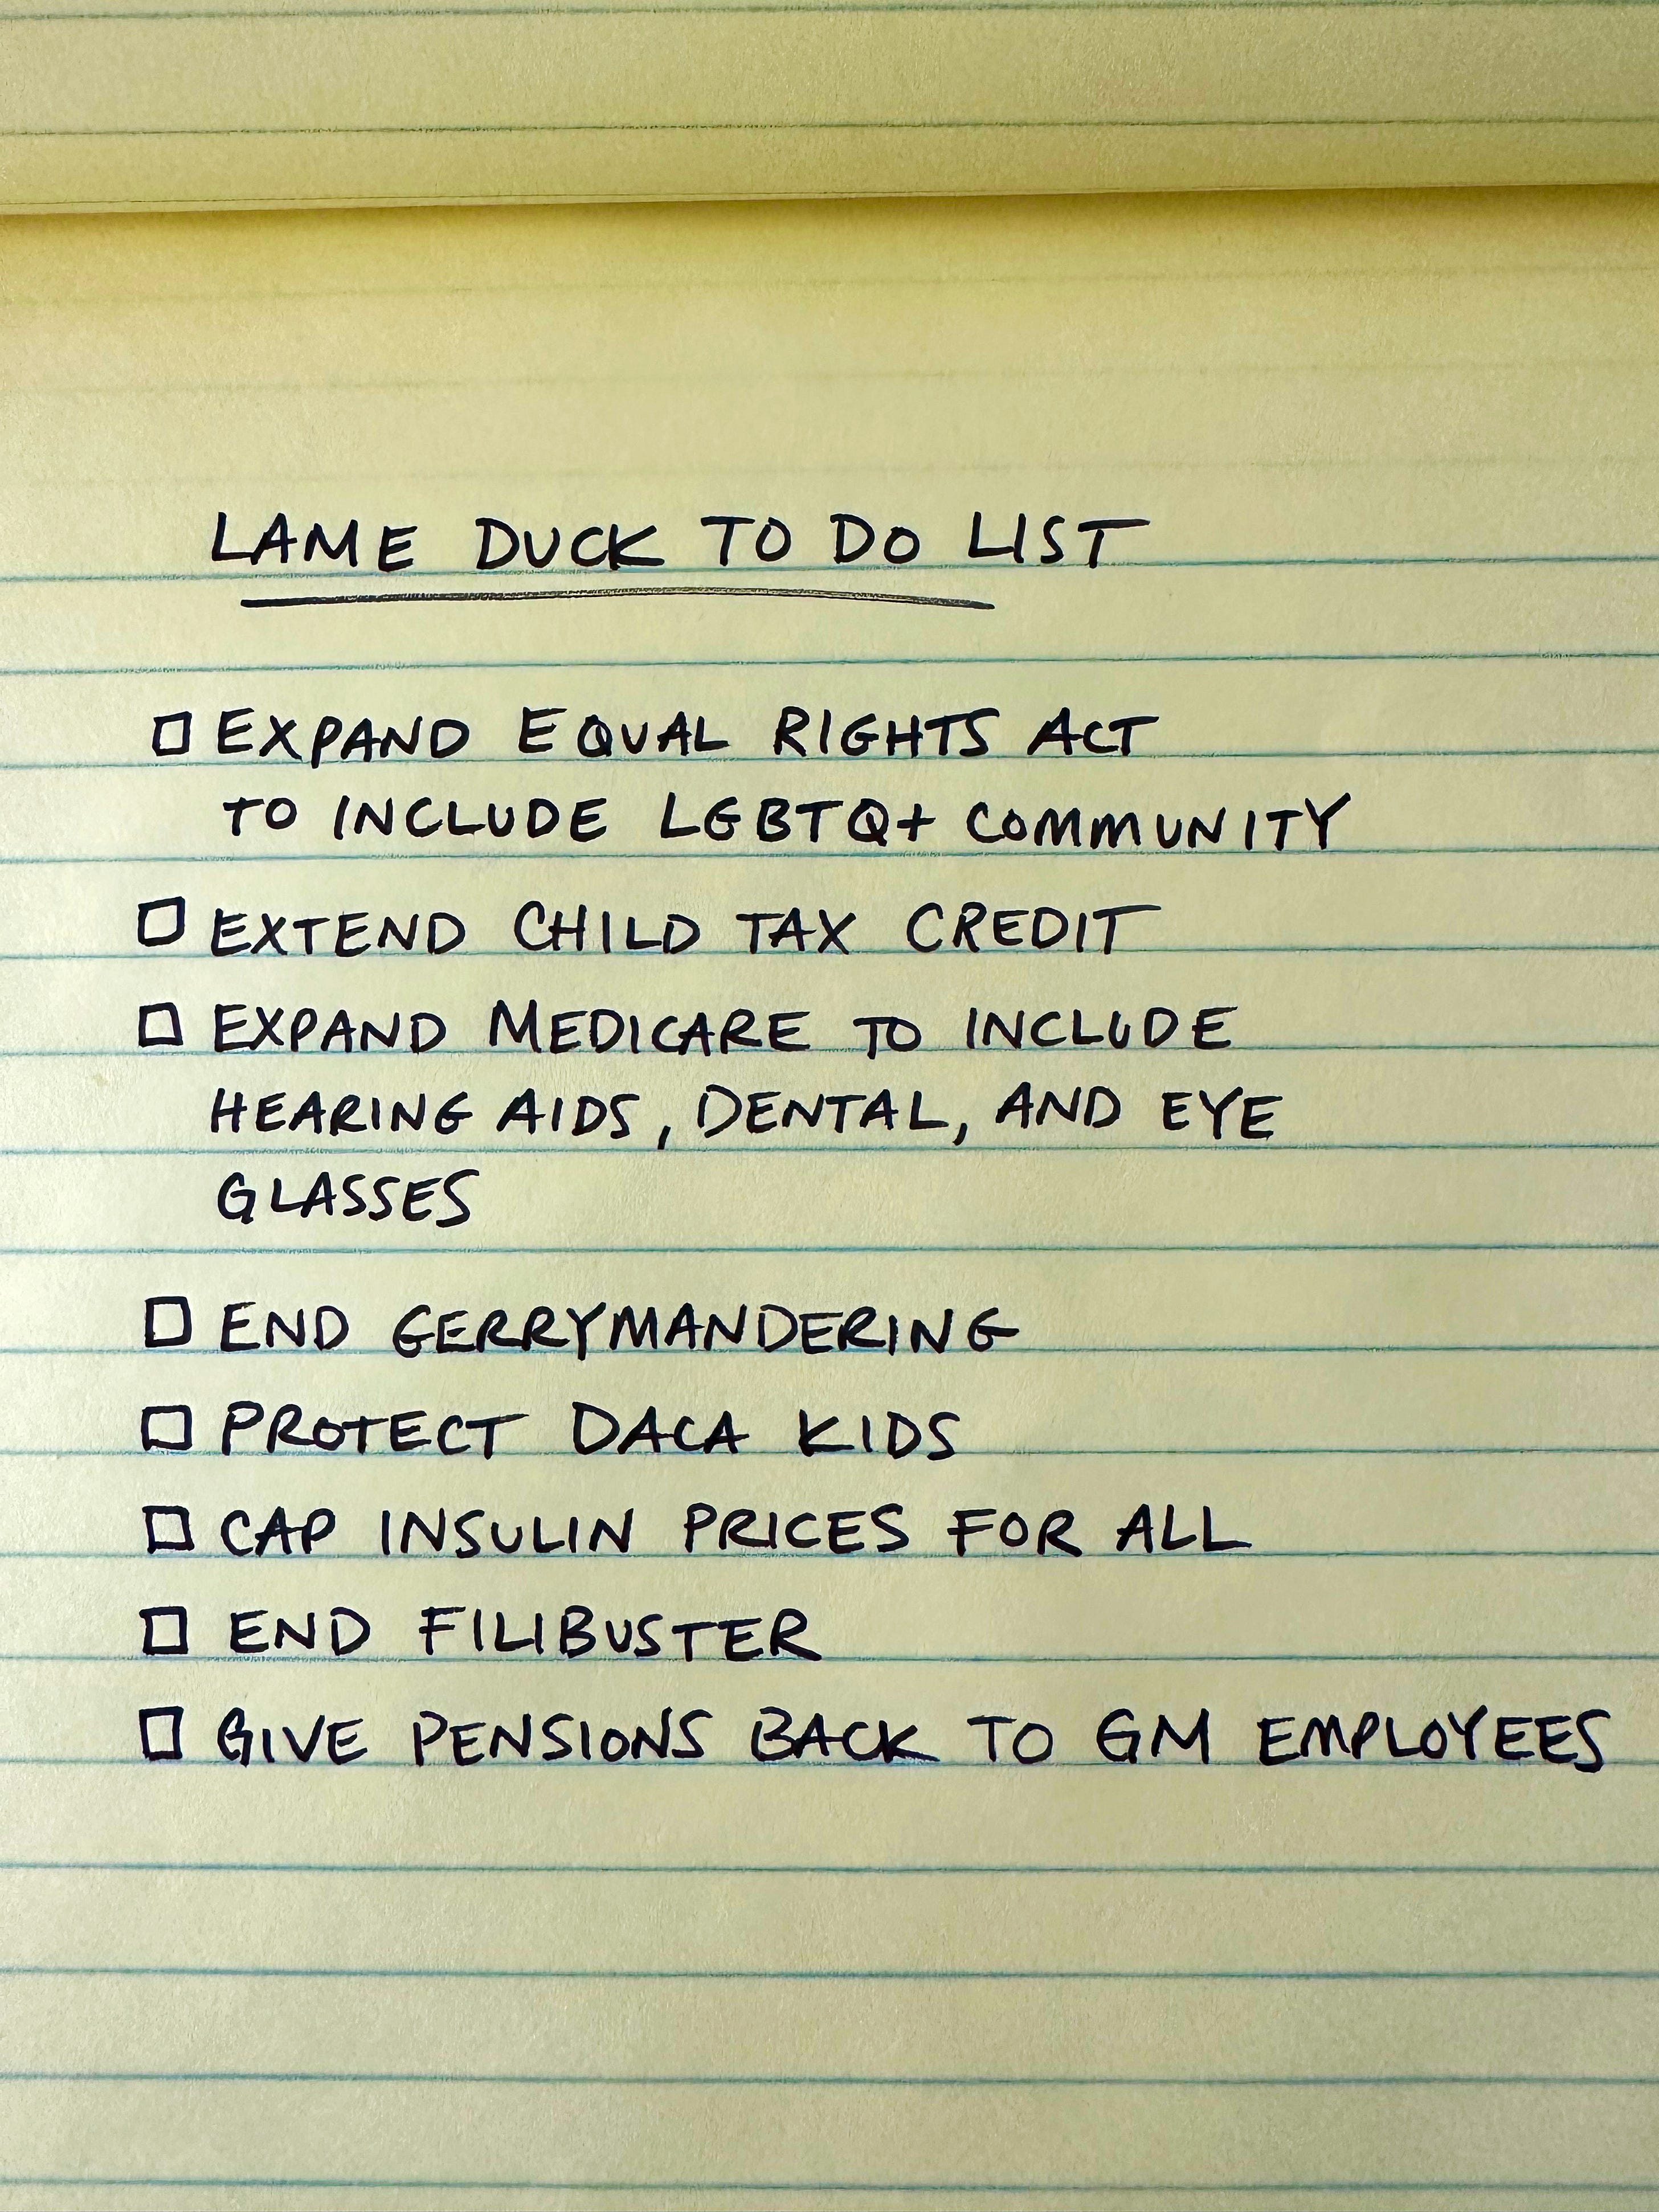 LAME DUCK TO DO LIST
□ EXPAND EQUAL RIGHTS ACT
TO INCLUDE LGBTQ+ COMMUNITY
□ EXTEND CHILD TAX CREDIT
□ EXPAND MEDICARE TO INCLUDE
HEARING AIDS, DENTAL, AND EYE
GLASSES
□ END GERRYMANDERING
□ PROTECT DACA KIDS
□ CAP INSULIN PRICES FOR ALL
□ END FILIBUSTER
□ GIVE PENSIONS BACK TO GM EMPLOYEES